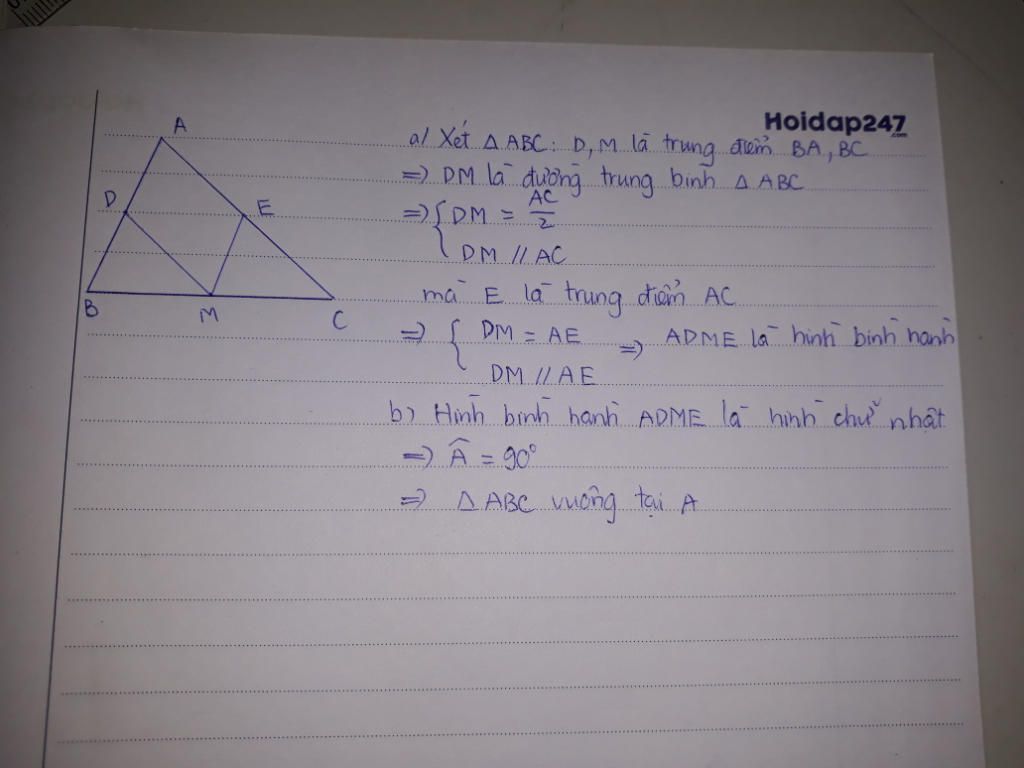 Hoidap247
.com
A
D
E
B
M
C
a/ Xét △ ABC: D, M là trung điểm BA, BC
=> DM là đường trung bình △ ABC
=> { DM = AC/2
DM // AC
mà E là trung điểm AC
=> { DM = AE => ADME là hình bình hành
DM // AE
b) Hình bình hành ADME là hình chữ nhật
=> Â = 90°
=> △ ABC vuông tại A